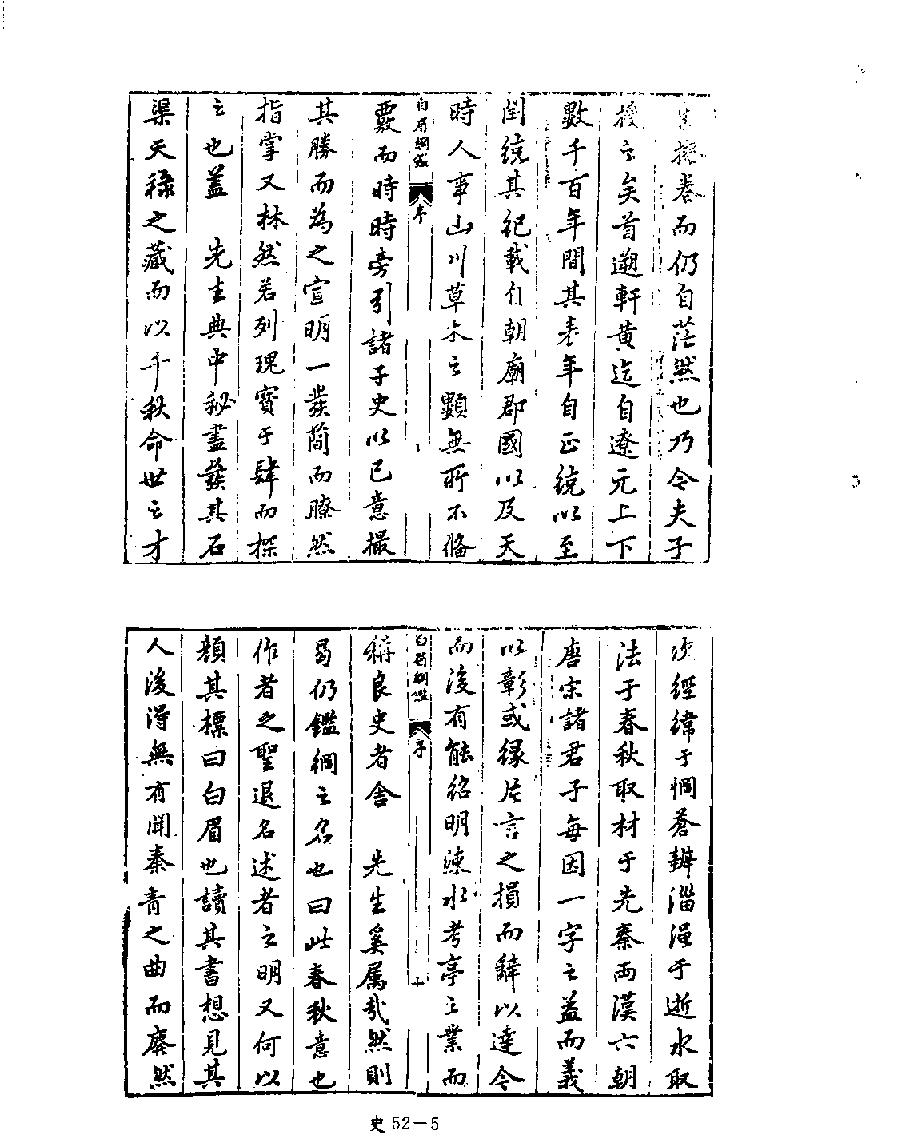 擬卷而仍自茫然也乃令夫子
授之矣首遡軒黃迄自遼元上下
數千百年間其表年自正統以至
閏統其紀載自朝廟郡國以及天
時人事山川草木之顯無所不脩
白眉綱鑑 序
覈而時時旁引諸子史以己意撮
其勝而為之宣明一發簡而瞭然
指掌又林然若列瑰寶于肆而探
之也蓋 先生典中秘盡發其石
渠天祿之藏而以千秋命世之才
次經緯于惆蒼辨淄澠于逝水取
法于春秋取材于先秦兩漢六朝
唐宋諸君子每因一字之益而義
以彰或緣片言之損而辭以達令
而後有能紹明涑水考亭之業而
白眉綱鑑 序 十
稱良史者舍 先生奚属哉然則
曷仍鑑綱之名也曰此春秋意也
作者之聖退名述者之明又何以
顏其標曰白眉也讀其書想見其
人後得無有聞秦青之曲而麋然
史 52-5